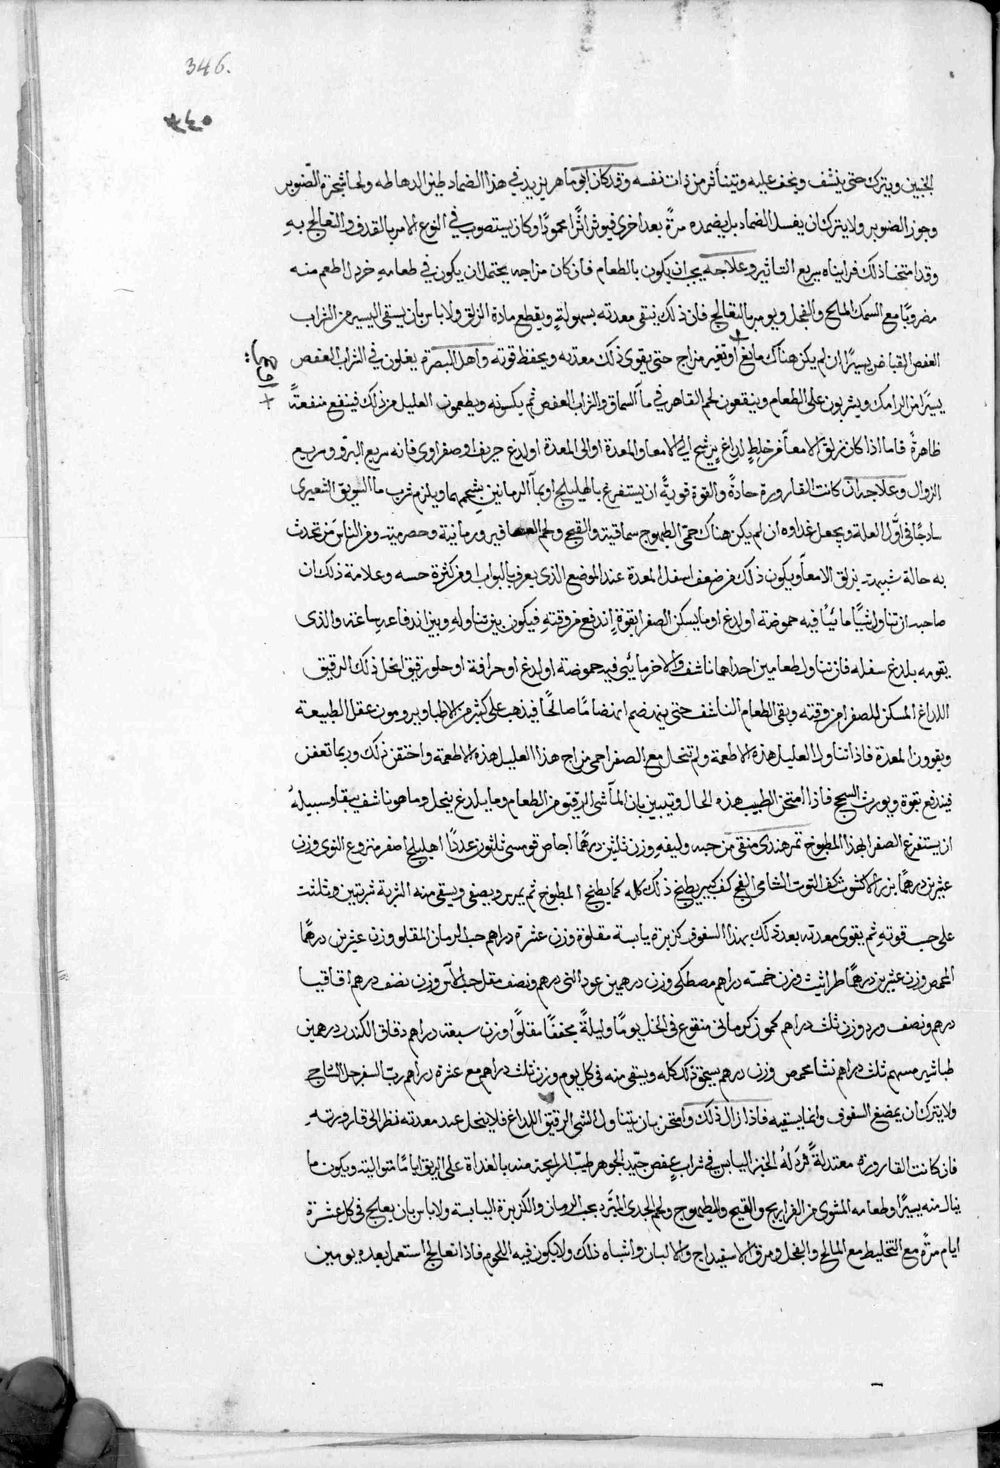 346.
٣٤٥
الجنبين ويترك حتى ينشف ويجف عليه ويتناثر من ذات نفسه وقد كان ابو ماهر يزيد في هذا الضماد طين ولحا شجرة الصنوبر
وجوز الصنوبر ولا يترك ان يفسد الضماد بل يضمده مرةً بعد اخرى فيوثر اثرًا محمودًا وكان يستصوب في النوع الامر بالقذف والتعالج به
وقد امتحنا ذلك فرايناه سريع التاثير وعلاجه يجب ان يكون بالطعام فان كان مزاجه يحتمل ان يكون في طعامه خردل اطعم منه
مضروبًا مع السمك المالح والفجل ويومر بالتعالج فان ذلك ينقى معدته بسهولةٍ ويقطع مادة الزلق ولا باس بان يسقى اليسير من الشراب
العفص القباض يسيرًا ان لم يكن هناك مانع او تغير مزاج حتى يقوى ذلك معدته ويحفظ قوته واهل البصرة يغلون في الشراب العفص
يسيرًا من الرامك ويشربون على الطعام وينقعون لحم في مآ السماق والشراب العفص ثم ويطعمون العليل من ذلك فينفع منفعتًا
ظاهرةً فاما اذا كان زلق الامعآ من خلطٍ لداغ يرشح الى الامعا والمعدة او الى المعدة اولدغ حريف او صفراوى فانه سريع البرو وسريع
الزوال وعلاجه ان كانت القارورة حادةً والقوة قويةً ان يستفرغ باهليلج او بمآ الرمانين بشحمهما ويلزم شرب ما السويق الشعيرى
ساذجًا فى اوّل العلة ويجعل غداوه ان لم يكن هناك حمىّ الطيهوج سماقية والقبج ولحم العصافير ورمانية وحصرمية ومن الناس من تحدث
به حالة شبيهت بزلق الامعآ ويكون ذلك من ضعف اسفل المعدة عند الموضع الذى يعرف بالبواب او من كثرة حسه وعلامة ذلك ان
صاحبه ان تناول شيًّا مائيًا فيه حموضة او لدغ او ما يسكن الصفرا بقوة اندفع من وقته فيكون بين تناوله وبين اندفاعه ساعته والذى
يقومه بلدغ سفله فان تناول طعامين احداهما ناشف والاخر مائى فيه حموضة او لدغ او حرافة او حلو رقيق انحل ذلك الرقيق
اللداغ المسكن للصفرا من وقته وبقى الطعام الناشف حتى ينهضم انهضامًا صالحًا فيذهب على كثير من الاطبا ويرومون عقل الطبيعة
ويقوون المعدة فاذا تناول العليل هذه الاطعمة ولم تنحل مع الصفرا حمى مزاج هذا العليل هذه الاطعمة واختقن ذلك وربما تعفن
فيندفع بقوة ويورث السحج فاذا امتحن الطبيب هذه الحال وتبين بان المآ شى الرقيق من الطعام وما يلدغ ينحل وما هو ناشف يبقا وسبيله
ان يستفرغ الصفرا بهذا المطبوخ تمر هندى منقى من حبه وليفه وزن ثلثين درهمًا اجاص قومسى ثلثون عددًا اهليلج اصفر منزوع النوى وزن
عشرين درهمًا بزر الاكشوث كف التوت الشامى الفج كف كبير يطبخ ذلك كله كما يطبخ المطبوخ ثم يمرس ويصفى ويسقى منه الشربة شربتين وثلثت
على حسب قوته ثم يقوى معدته بعد ذلك بهذا السفوف كزبرة يابسة مقلوة وزن عشرة دراهم حب الرمان المقلو وزن عشرين درهمًا
المحمص وزن عشرين درهمًا طراثيث وزن خمسة دراهم مصطكى وزن درهمين عود النى درهم ونصف مقل حب الاس وزن نصف درهم اقاقيا
درهم ونصف ورد وزن ثلث دراهم كمون كرمانى منقوع فى الخل يومًا وليلةً مجففًا مقلوًا وزن سبعة دراهم دقاق الكندر درهمين
طباشير مسهم ثلث دراهم نشا محمص وزن درهم يسحق ذلك كله ويسقى منه فى كل يوم وزن ثلث دراهم مع عشرة دراهم ربّ السفرجل الساذج
ولا يترك ان يمضغ السفوف وانما يستفه فاذا زال ذلك وامتحن بان يتناول الشى الرقيق اللداغ فلا ينحل عند معدته نظر الى قارورته
فان كانت القارورة معتدلةً فرد له الخبز اليابس في شراب عفص جيّد الجوهر طيّب الرايحة منه بالغداة على الريق ايامًا متوالية ويكون ما
ينال منه يسيرًا وطعامه المشوى من الفراريج والقبج والطيهوج ولحم الجدى المتبّرد بحب الرمان والكزبرة اليابسة ولا باس بان يعالج فى كل عشرة
ايام مرةً مع التخليط مع المالح والفجل ومرق الاسفيداج والالبان واشباه ذلك ولا يكون فيه اللحوم فاذا تعالج استعمل بعده يومين